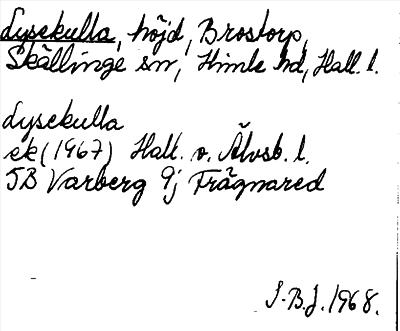 Lysekulla, höjd, Brostorp,
Skällinge sn, Himle hd, Hall. l.
Lysekulla
ek (1967) Hall. o. Älvsb. l.
JB Varberg 9j Frägnared
S.B.J. 1968.